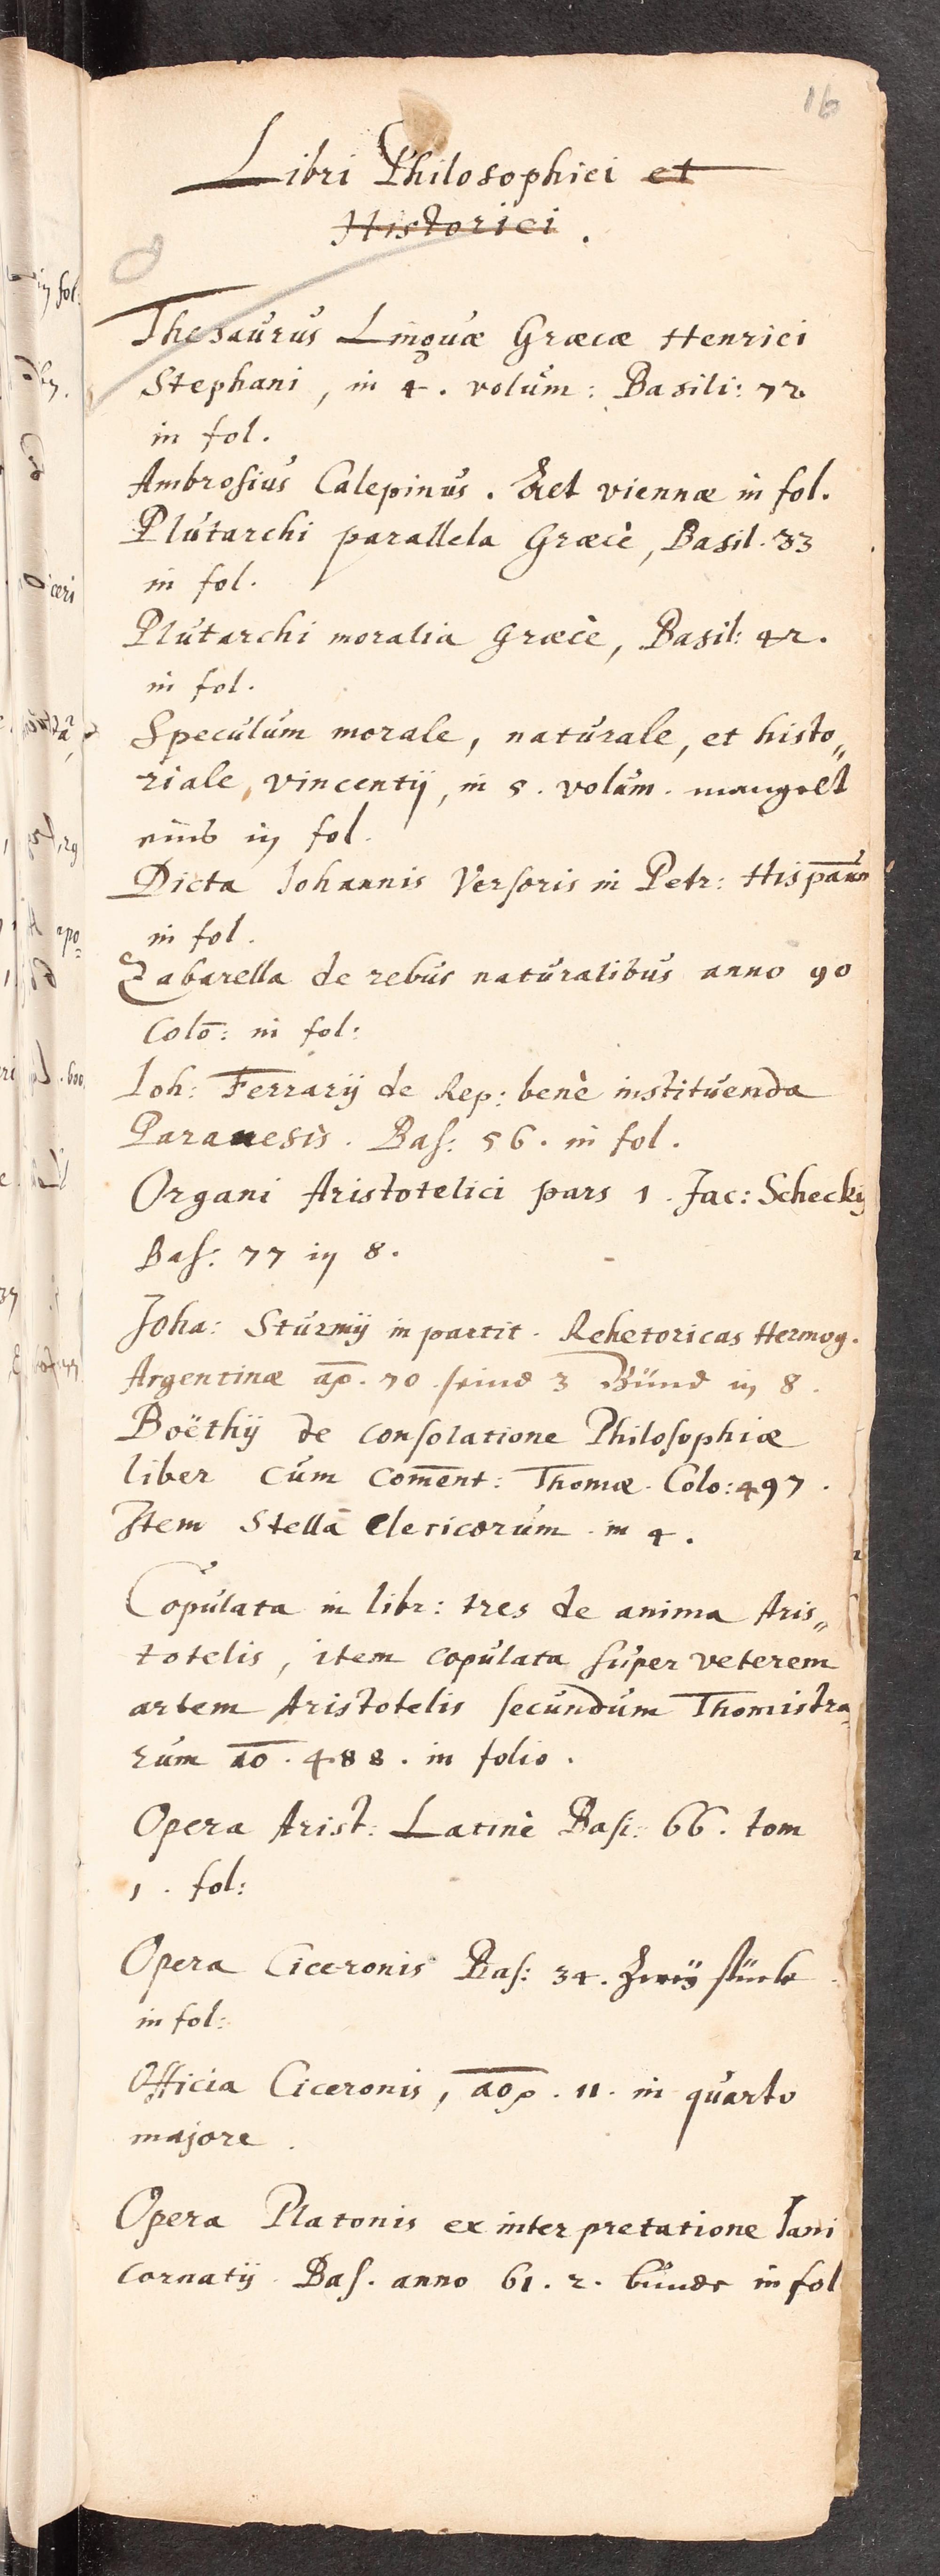 16
Libri Philosophici et
Historici.
Thesaurus Linguæ Græcæ Henrici
Stephani, in 4. volum: Basili: 72
in fol.
Ambrosius Calepinus. viennæ in fol.
Plutarchi parallela Græcè, Basil. 33
in fol.
Plutarchi moralia Græcè, Basil: 42.
in fol.
Speculum morale, naturale, et histo„
riale, vincentij, in 5. volum. mangelt
eins in fol.
Dicta Iohannis Versoris in Petr: Hispanum
in fol.
Zabarella de rebus naturalibus anno 90
Colō: in fol:
Ioh: Ferrarij de Rep: benè instituenda
Paranesis. Bas: 56. in fol.
Organi Aristotelici pars 1. Jac: Scheckij
Bas: 77 in 8.
Joha: Sturmij in partit. Rehetoricas Hermog.
Argentinæ ao. 70 seind 3 Bünd in 8.
Boëthij de consolatione Philosophiæ
liber cum comēnt: Thomæ. Colo: 497.
Item Stella clericorum in 4.
Copulata in libr: tres de anima Aris„
totelis, item copulata super veterem
artem Aristotelis secundum Thomistra„
rum ao. 488. in folio.
Opera Arist: Latinè Basi: 66. tom
1. fol:
Opera Ciceronis Bas: 34. Zweÿ stück
in fol:
Officia Ciceronis, ao. 11. in quarto
majore.
Opera Platonis ex interpretatione Iani
cornatij. Bas. anno 61. 2. bünde in fol